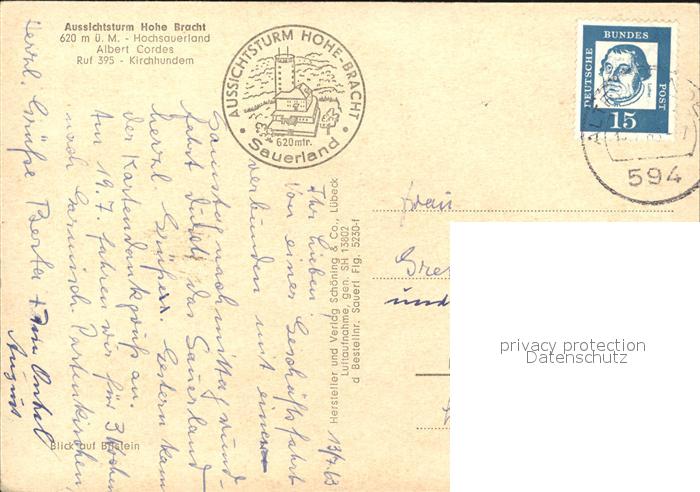 Aussichtsturm Hohe Bracht
620 m ü. M. - Hochsauerland
Albert Cordes
Ruf 395 - Kirchhundem
AUSSICHTSTURM HOHE-BRACHT
620 mtr.
Sauerland
DEUTSCHE BUNDES POST
Luther
15
594
Frau
und
13/7.63
Ihr Lieben!
Von einer Geschäftsfahrt
verbunden mit einer
Samstagnachmittag rund-
fahrt durch das Sauerland
herzl. Grüße. Gestern kam
der Kartendankgruß an.
Am 19.7. fahren wir für 3 Wochen
nach Garmisch Partenkirchen,
Herzl. Grüße Berta + Onkel
August
Hersteller und Verlag Schöning & Co., Lübeck
Luftaufnahme, gen. SH 13802
a Bestellnr. Sauerl Flg. 5230-f
Blick auf Bilstein
privacy protection
Datenschutz